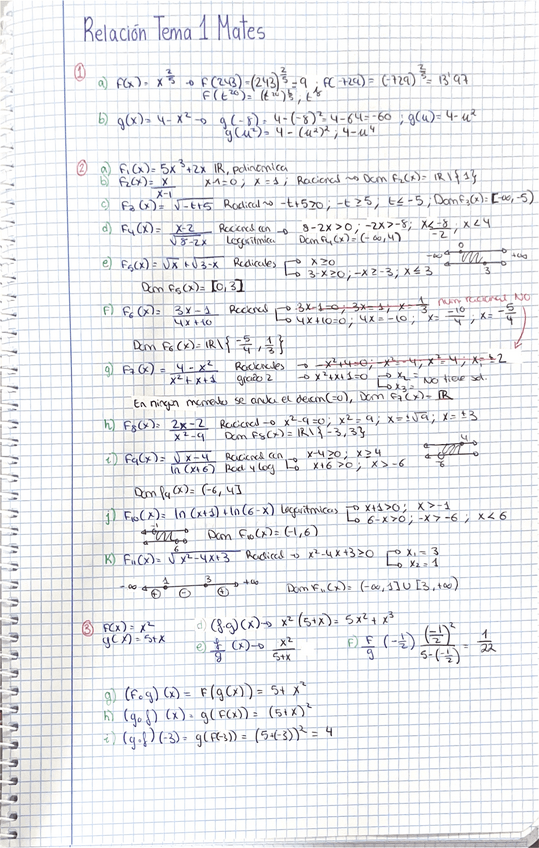 Relación Tema 1 Mates
① a) F(x) = x^(2/5) → F(243) = (243)^(2/5) = 9 ; F(-729) = (-729)^(2/5) = 13'97
F(t²⁰) =
b) g(x) = 4 - x² → g(-8) = 4-(-8)² = 4-64 = -60 ; g(u) = 4-u²
g(u²) = 4-(u²)², 4-u⁴
② a) F₁(x) = 5x³+2x IR, polinomica
b) F₂(x) = x/(x-1) x-1=0, x=1; Racional → Dom F₂(x) = IR\{1}
c) F₃(x) = √(-t+5) Radical → -t+5≥0, -t≥5, t≤-5, Dom F₃(x) = [-∞,-5)
d) F₄(x) = (x-2)/√(8-2x) Racional con → 8-2x>0, -2x>-8, x<-8/-2, x<4
Logaritmica Dom F₄(x) = (-∞,4)
e) F₅(x) = √x + √(3-x) Radicales x≥0 -∞ 0 +∞
3-x≥0, -x≥-3, x≤3 3
Dom F₅(x) = [0,3]
F) F₆(x) = (3x-1)/(4x+10) Racional 3x-1=0, 3x=1, x=1/3 num racional NO
4x+10=0, 4x=-10, x=-10/4, x=-5/4
Dom F₆(x) = IR\{-5/4, 1/3}
g) F₇(x) = (4-x²)/(x²+x+1) Racionales → -x²+4=0, -x²=-4, x²=4, x=±2
grado 2 → x²+x+1=0 x₁= x₂= No tiene sol.
En ningun momento se anula el denom(=0), Dom F₇(x) = IR
h) F₈(x) = (2x-2)/(x²-9) Racional → x²-9=0, x²=9, x=±√9, x=±3
Dom F₈(x) = IR\{-3,3}
i) F₉(x) = √(x-4)/ln(x+6) Racional con x-4≥0; x≥4 4
Rad y log x+6>0; x>-6 6
Dom F₉(x) = (-6,4]
j) F₁₀(x) = ln(x+1)+ln(6-x) Logaritmicas x+1>0; x>-1
6-x>0; -x>-6, x<6
-1 6 Dom F₁₀(x) = (-1,6)
K) F₁₁(x) = √(x²-4x+3) Radical → x²-4x+3>0 x₁=3
x₂=1
-∞ 1 3 +∞ Dom F₁₁(x) = (-∞,1]∪[3,+∞)
+ - +
③ F(x) = x² d) (f·g)(x) → x²(5+x) = 5x²+x³
g(x) = 5+x e) f/g (x) → x²/(5+x) F) F/g (-1/2) (-1/2)²/(5-(-1/2)) = 1/22
g) (F∘g)(x) = F(g(x)) = 5+x²
h) (g∘f)(x) = g(F(x)) = (5+x)²
i) (g∘f)(-3) = g(F(-3)) = (5+(-3))² = 4